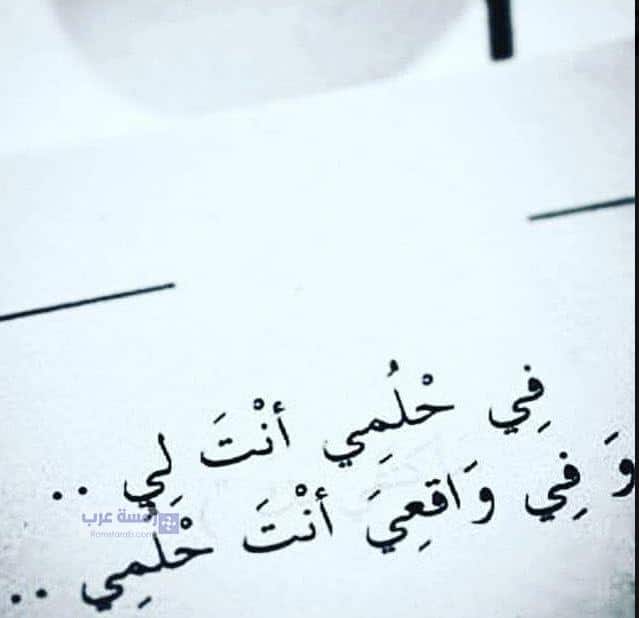 فِي حْلُمِي أنْتَ لِي ..
وَ فِي وَاقعِيَ أنْتَ حْلْمِي ..
رمسة عرب
Ramstarab.com